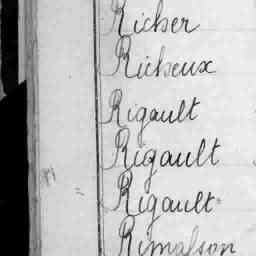 Richer
Richeux
Rigault
Rigault
Rigault
Rimasson